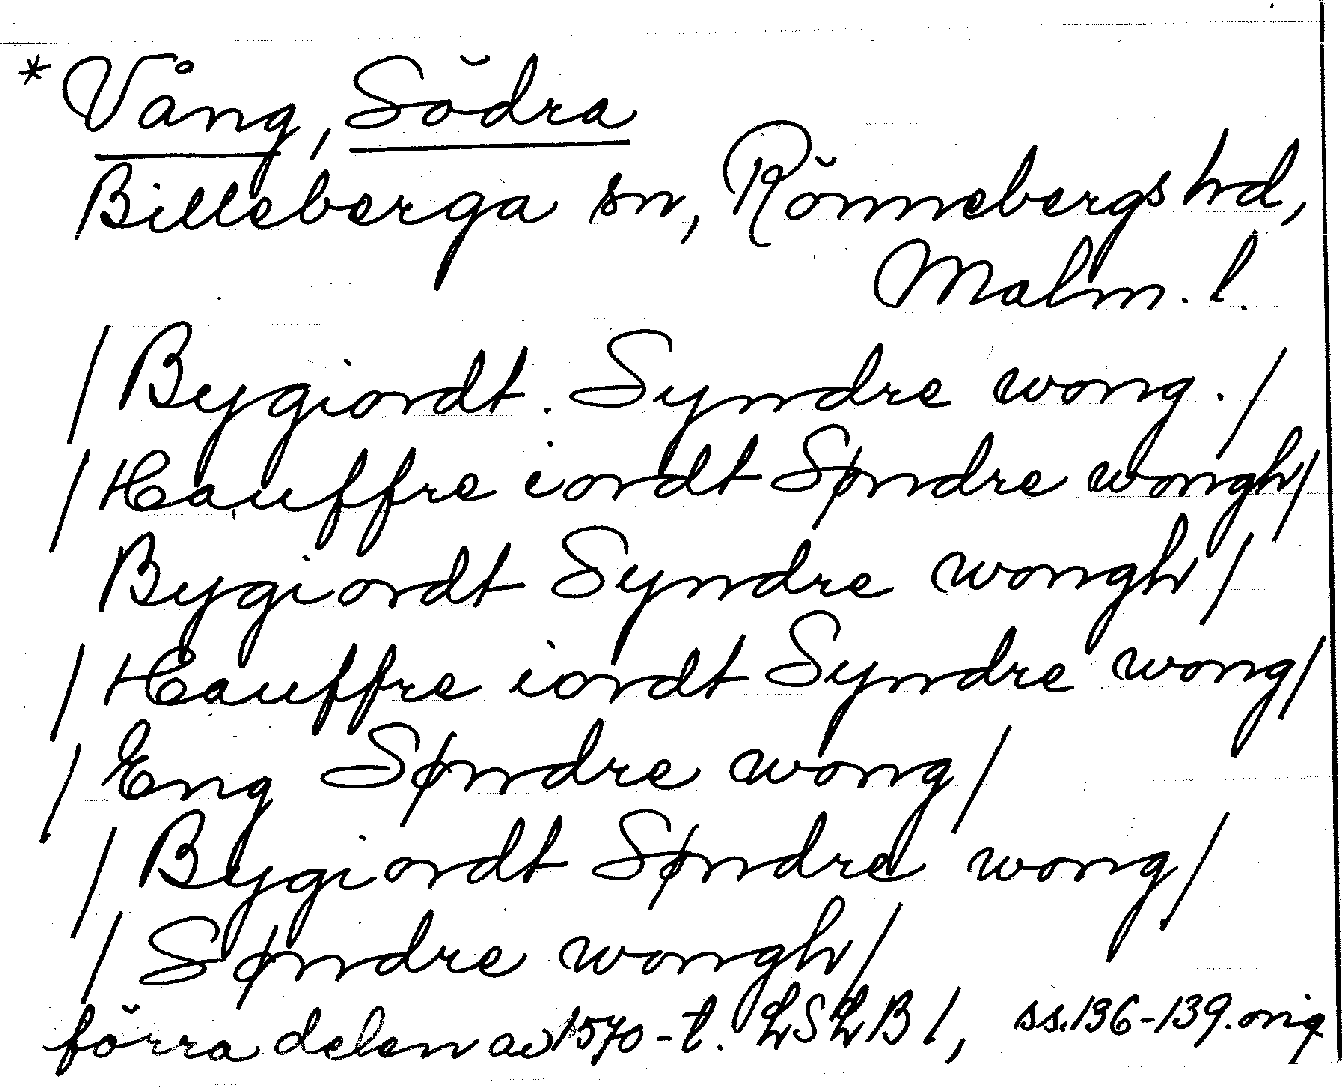 * Vång, Södra
Billeberga sn, Rönnebergs hd,
Malm. l.
/ Bygiordt. Syndre wong. /
/ Hauffre iordt Søndre wongh /
Bygiordt Syndre wongh /
/ Hauffre iordt Syndre wong /
/ Eng Søndre wong /
/ Bygiordt Søndre wong /
/ Søndre wongh /
förra delen av 1570-t. LSLB 1, ss. 136-139. orig